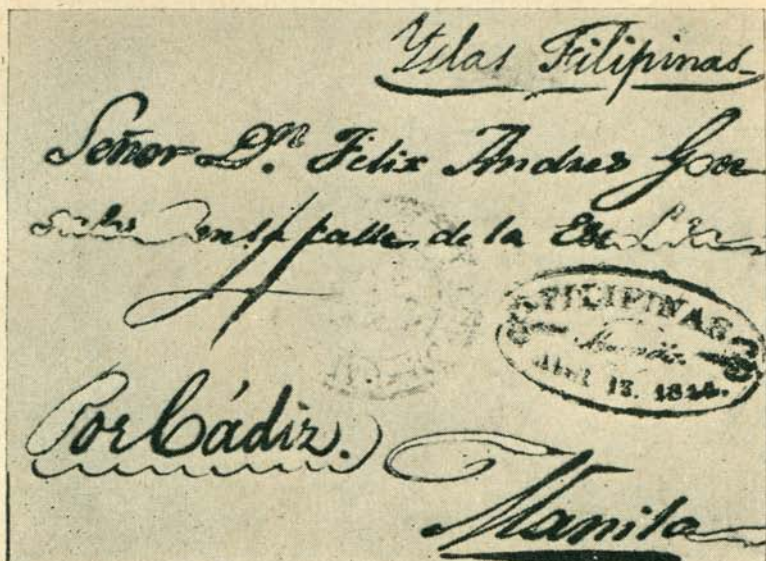 Yslas Filipinas
Señor Dn. Felix Andres
calle de la
FILIPINAS
Manila
Abril 13. 1844.
Por Cádiz.
Manila